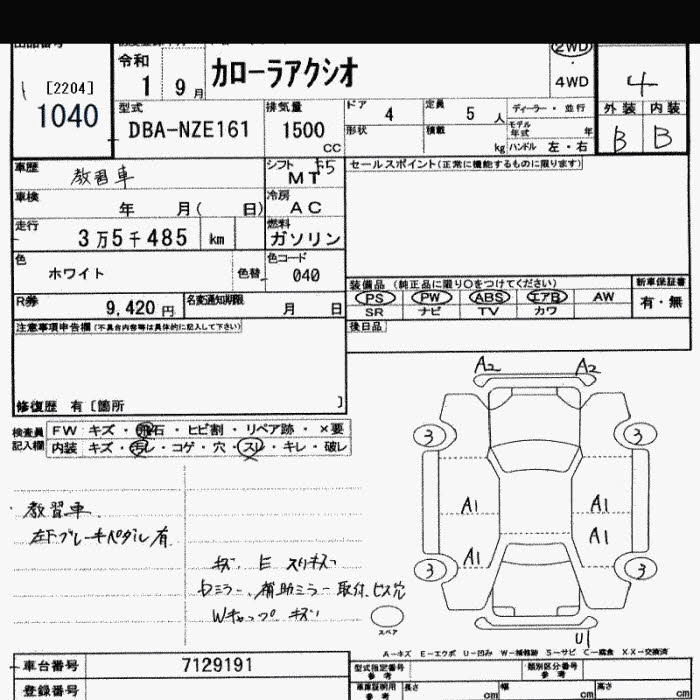 出品番号
[2204]
1040
令和
1 9月
カローラアクシオ
2WD
・
4WD
4
型式
DBA-NZE161
排気量
1500
CC
ドア 4
定員 5 人
ディーラー ・ 並行
形状
積載 kg
モデル年式 年
ハンドル 左・右
外装 内装
B B
車歴
教習車
シフト F5
MT
セールスポイント(正常に機能するものに限ります)
車検
年 月( 日)
冷房
AC
走行
3万5千485 km
燃料
ガソリン
色
ホワイト
色替
色コード
040
装備品 (純正品に限り○をつけてください)
PS PW ABS エアB AW
SR ナビ TV カワ
新車保証書
有・無
R券
9,420 円
名変通知期限
月 日
後日品
注意事項申告欄(不具合内容等は具体的に記入して下さい)
修復歴 有〔箇所 〕
検査員
記入欄
FW キズ ・ 飛石 ・ ヒビ割 ・ リペア跡 ・ ×要
内装 キズ ・ 汚レ ・ コゲ ・ 穴 ・ スレ ・ キレ ・ 破レ
A2 A2
3 3
A1 A1
A1
A1
3 3
U1
スペア
教習車
左下ブレーキペダル有
キズ、E スリキズ
Dミラー、補助ミラー取付ビス穴
Wキャップ キズ
A−キズ E−エクボ U−凹み W−補修跡 S−サビ C−腐食 XX−交換済
車台番号
7129191
型式指定番号
参考
類別区分番号
参考
登録番号
車庫証明用
参考
長さ cm
幅 cm
高さ cm